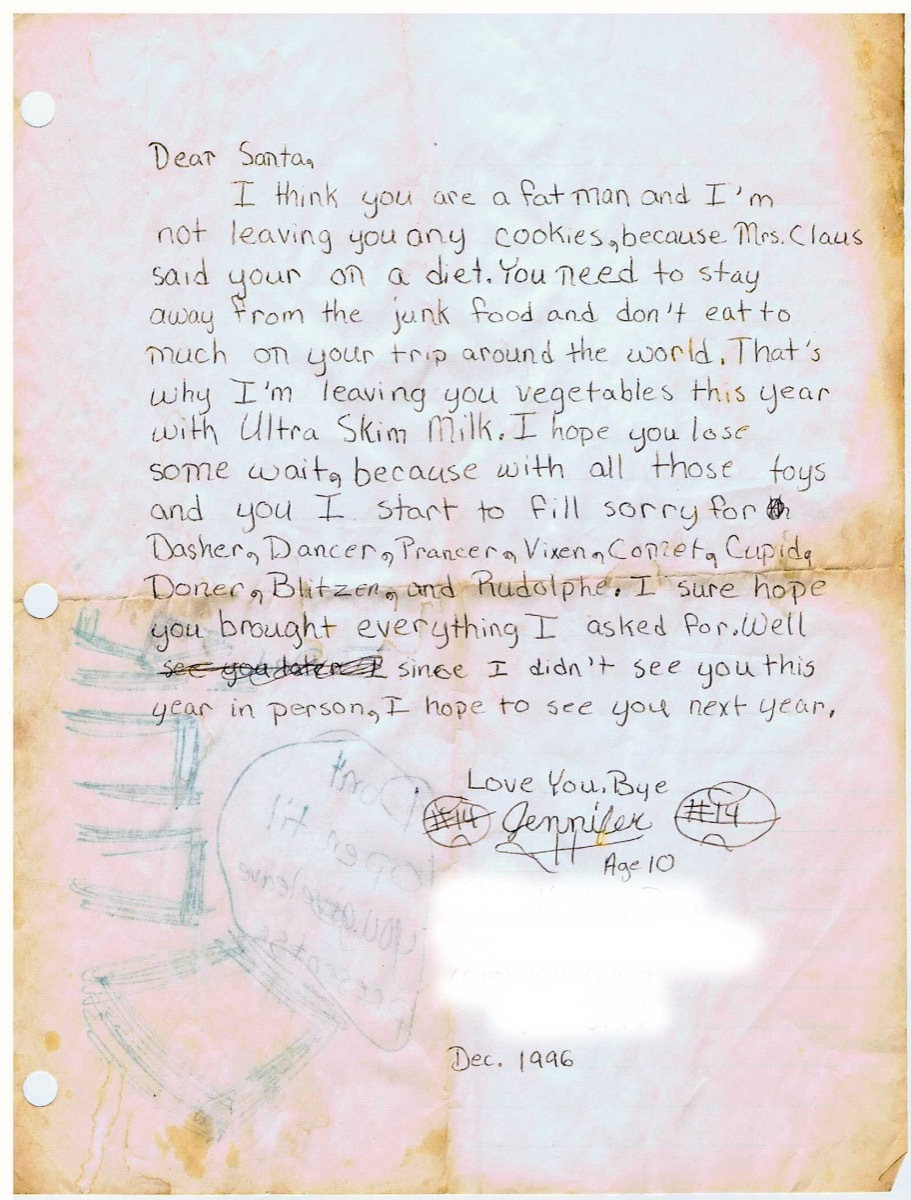 Dear Santa,
I think you are a fat man and I'm
not leaving you any cookies, because Mrs. Claus
said your on a diet. You need to stay
away from the junk food and don't eat to
much on your trip around the world. That's
why I'm leaving you vegetables this year
with Ultra Skim Milk. I hope you lose
some wait, because with all those toys
and you I start to fill sorry for
Dasher, Dancer, Prancer, Vixen, Comet, Cupid,
Doner, Blitzen, and Rudolphe. I sure hope
you brought everything I asked for. Well
see you later I since I didn't see you this
year in person, I hope to see you next year.
Love You, Bye
#14 Jennifer #14
Age 10
Dec. 1996
Don't
open til
you leave